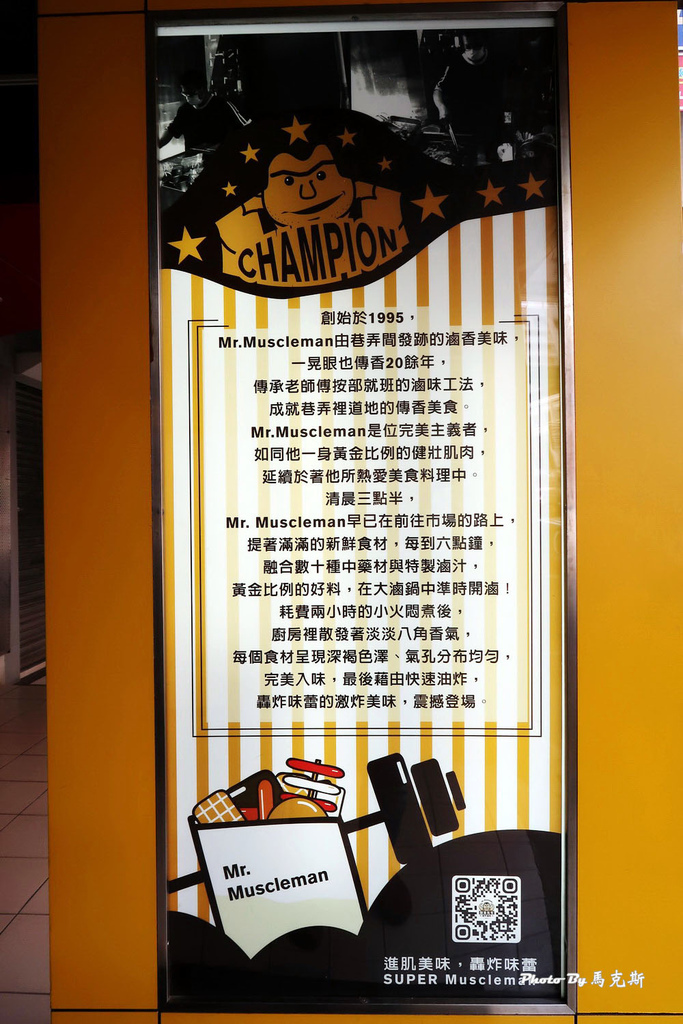 CHAMPION
創始於1995，
Mr.Muscleman由巷弄間發跡的滷香美味，
一晃眼也傳香20餘年，
傳承老師傅按部就班的滷味工法，
成就巷弄裡道地的傳香美食。
Mr.Muscleman是位完美主義者，
如同他一身黃金比例的健壯肌肉，
延續於著他所熱愛美食料理中。
清晨三點半，
Mr. Muscleman早已在前往市場的路上，
提著滿滿的新鮮食材，每到六點鐘，
融合數十種中藥材與特製滷汁，
黃金比例的好料，在大滷鍋中準時開滷！
耗費兩小時的小火悶煮後，
廚房裡散發著淡淡八角香氣，
每個食材呈現深褐色澤、氣孔分布均勻，
完美入味，最後藉由快速油炸，
轟炸味蕾的激炸美味，震撼登場。
Mr.
Muscleman
進肌美味，轟炸味蕾
SUPER Muscleman
Photo By 馬克斯